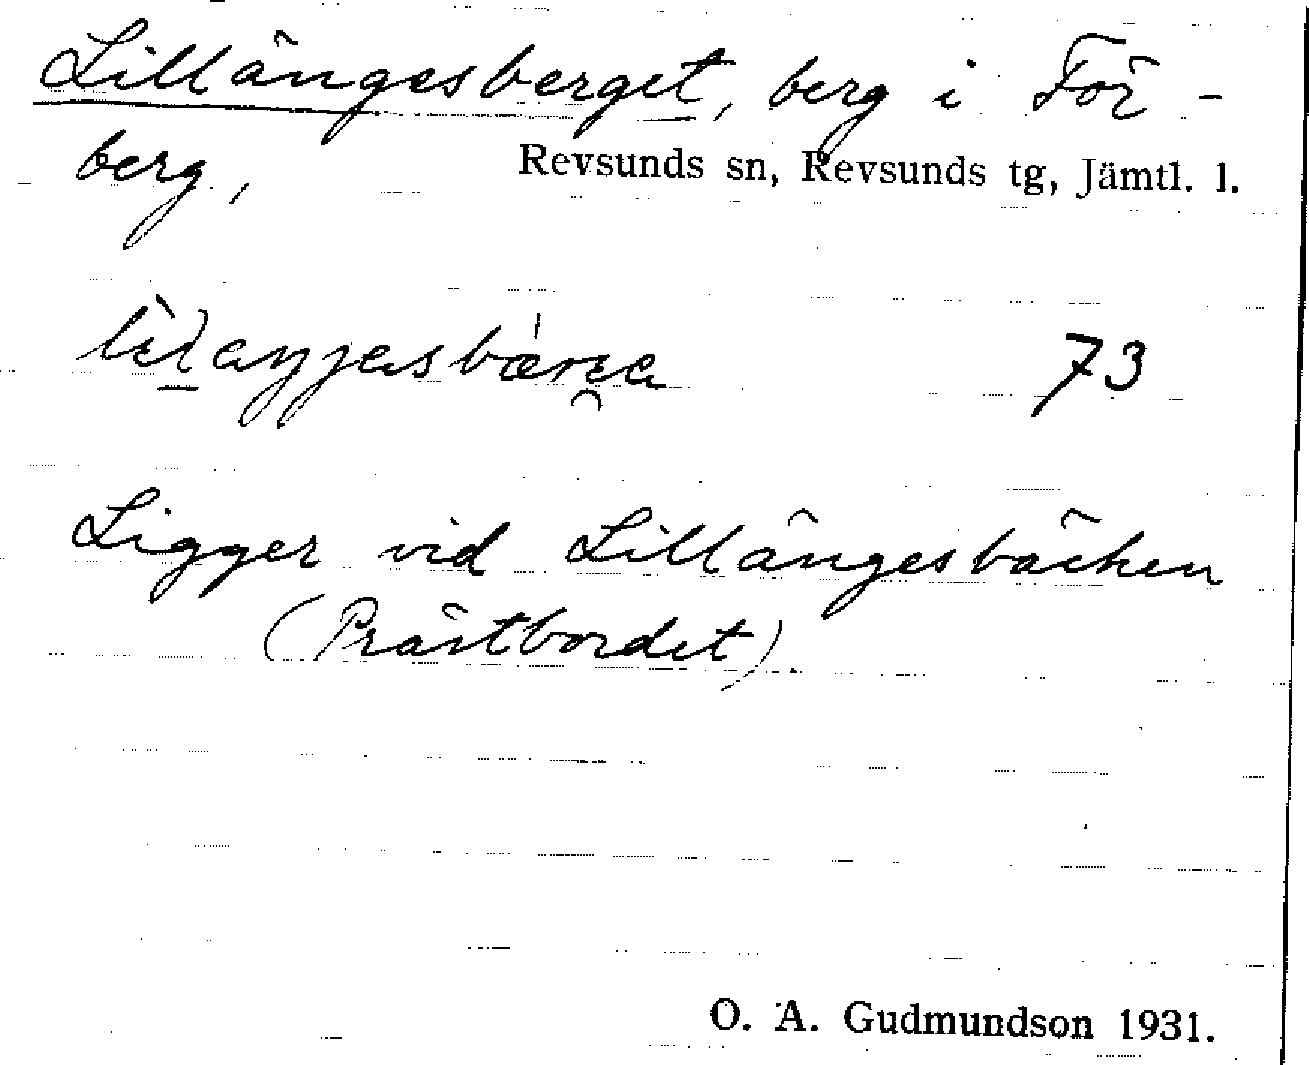 Lillängesberget, berg i För-
berg,
Revsunds sn, Revsunds tg, Jämtl. l.
73
Ligger vid Lillängesbäcken
(Prästbordet)
O. A. Gudmundson 1931.